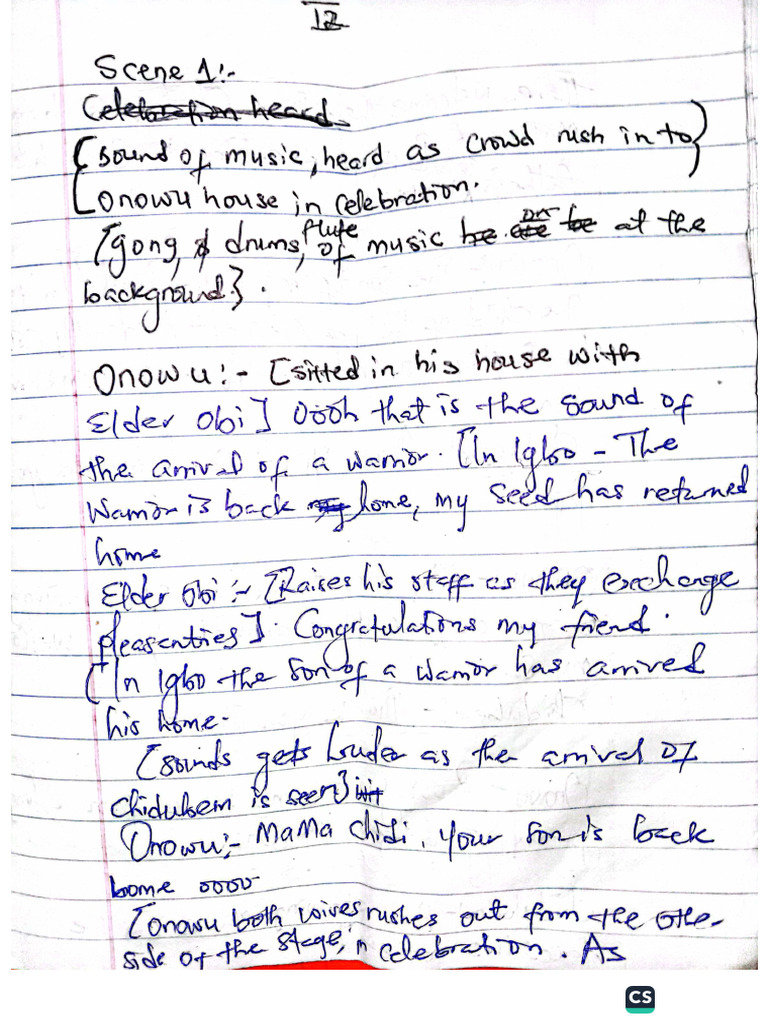 12
Scene 1:-
Celebration heard
[sound of music, heard as crowd rush in to}
[onowu house in celebration.
[gong, & drums, flute of music be on be at the
background}.
Onowu:- [sitted in his house with
Elder Obi] Oooh that is the sound of
the arrival of a warrior. [In Igbo - The
Warrior is back home, my seed has returned
home
Elder Obi:- [Raises his staff as they exchange
pleasentries]. Congratulations my friend.
(In Igbo the son of a warrior has arrived
his home.
[sounds gets louder as the arrival of
chidubem is seen}
Onowu:- MaMa Chidi, your son is back
home oooo
[onowu both wives rushes out from the othe-
side of the stage, in celebration. As
CS